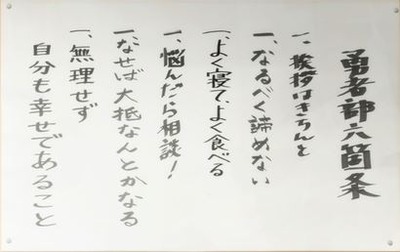 勇者部六箇条
一、挨拶はきちんと
一、なるべく諦めない
一、よく寝て、よく食べる
一、悩んだら相談!
一、なせば大抵なんとかなる
一、無理せず
自分も幸せであること